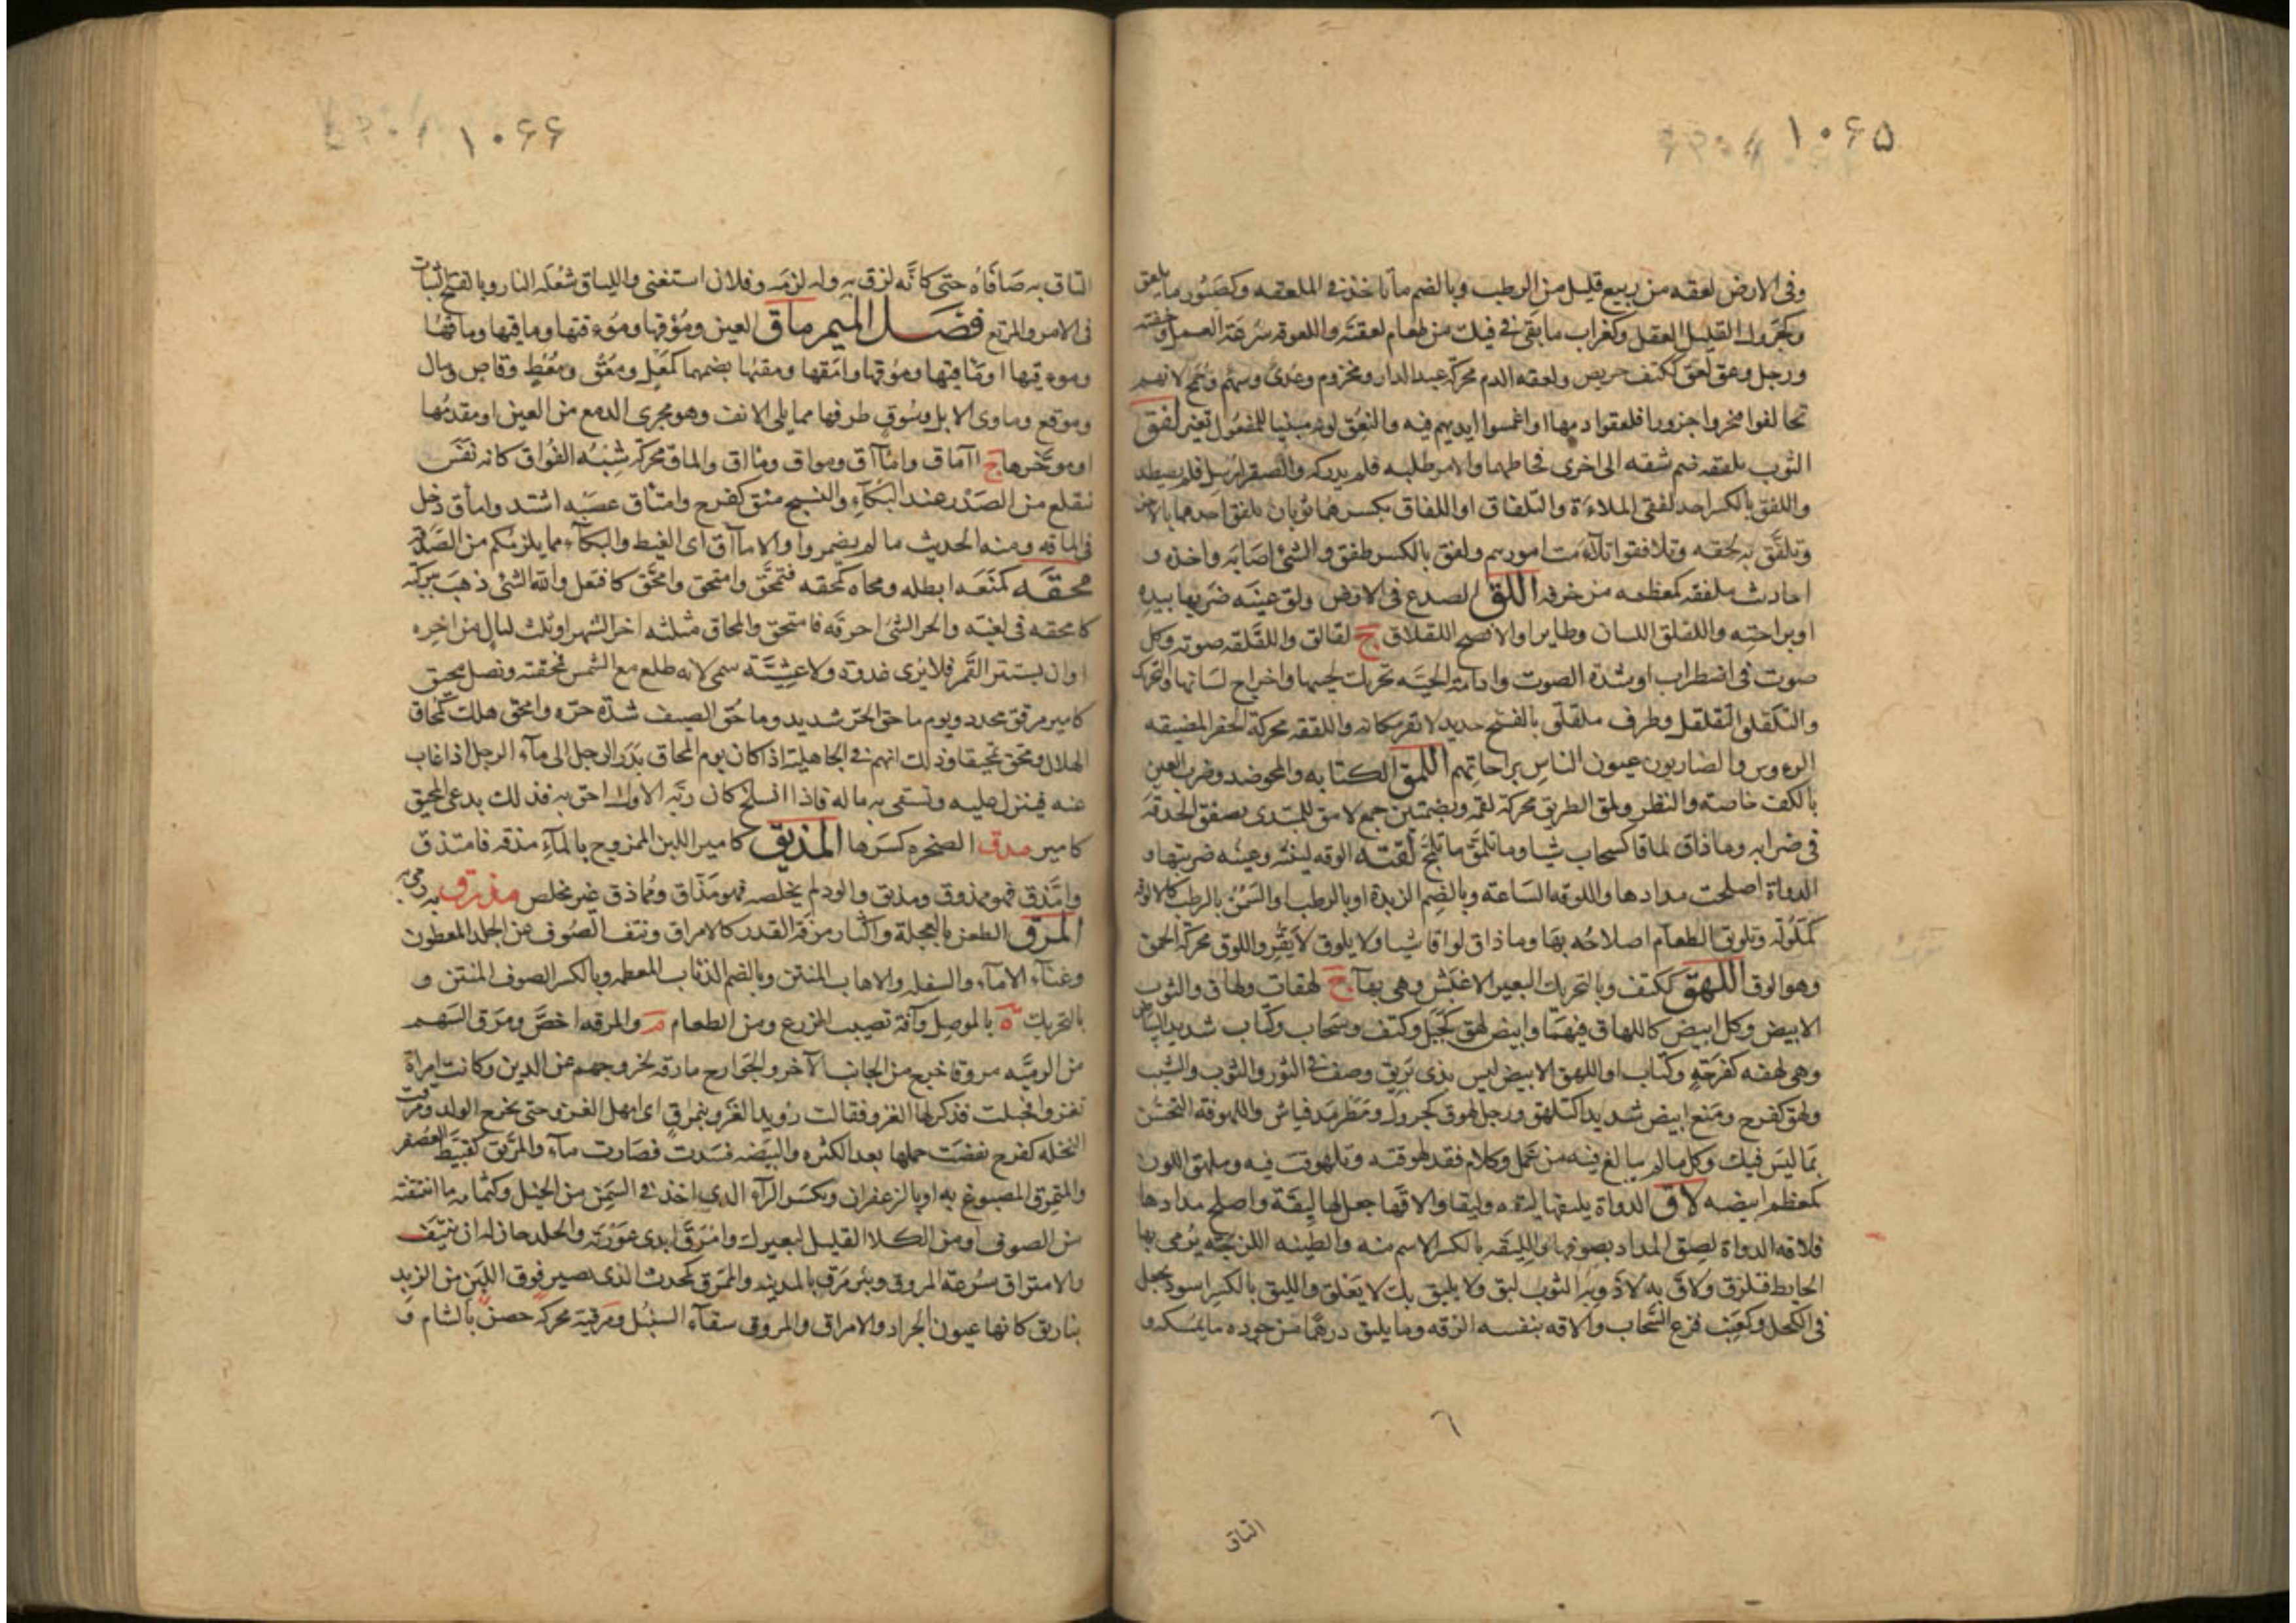 ١٠۶۵
وفى الارض لعقه من ربيع قليل من الرطب وبالضم ما تاخذ فى الملعقه وكصبور ما يلعق
وكجرول القليل العقل وكغراب ما بقى فى فيك من طعام لعقته واللعوقه سرعة العمل وخفته
ورجل وعق لعق ككتف حريص ولعقه الدم محركة عبد الدار ومخزوم وعدى وسهم وجمح لانهم
تحالفوا فنحروا جزورا فلعقوا دمها او اغمسوا ايديهم فيه والتعق لونه مبنيا للمفعول تغير لفق
الثوب يلفقه ضم شقه الى اخرى فخاطهما والامر طلبه فلم يدركه والصقر ارسل فلم يصطد
واللفق بالكسر احد لفقى الملاءة والتلفاق او اللفاق بكسرهما ثوبان يلفق احدهما بالاخر
وتلفق به لحقه وتلافقوا تلاءمت امورهم ولفق بالكسر طفق والشئ اصابه واخذه و
احاديث ملفقه كمعظمه مزخرفه اللق الصدع فى الارض ولق عينه ضربها بيده
او براحته واللقلق اللسان وطاير او الافصح اللقلاق ج لقالق واللقلقه صوته وكل
صوت فى اضطراب او شدة الصوت وادامة الحية تحريك لحييها واخراج لسانها والتحرك
والتلقلق التقلقل وطرف ملقلق بالفتح حديد لا تقر مكانه واللققه محركة الحفر المضيقه
الروءوس والضاربون عيون الناس براحاتهم اللمق الكتابه والمحو ضد وضرب العين
بالكف خاصة والنظر ولمق الطريق محركة لقمه وبضمتين جمع لامق للمبتدى بصفق الحدقة
فى ضرابه وما ذاق لماقا كسحاب شيا وما تلمق ما تلمج لقته الوقه لينته وعينه ضربتها و
الدواة اصلحت مدادها واللوقه الساعة وبالضم الزبدة او بالرطب او السمن بالرطب كالالوقه
كملولة وتلويق الطعام اصلاحه بها وما ذاق لواقا شيا ولا يلوق لا يقر واللوق محركة الحمق
وهو الوق اللهق ككتف وبالتحريك البعير الاغبش وهى بهآ ج لهقات ولهاق والثوب
الابيض وكل ابيض كاللهاق فيهما وابيض لهق كجبل وكتف وسحاب وكتاب شديد البياض
وهى لهقه كفرحة وكتاب او اللهق الابيض ليس بذى بريق وصف فى الثور والثوب والشيب
ولهق كفرح ومنع ابيض شديدا كتلهق ورجل لهوق كجرول ومطرمد فياش واللهوقة التحسن
بما ليس فيك وكل ما لم يبالغ فيه من عمل وكلام فقد لهوقته وتلهوقت فيه وملهق اللون
كمعظم ابيضه لاق الدواة يليقها ليقه وليقا والاقها جعل لها ليقة واصلح مدادها
فلاقه الدواة لصق المداد بصوفها والليقه بالكسر الاسم منه والطينه اللزجة يرمى بها
الحايط فتلزق ولاق به لاذ وبه الثوب لبق ولا يليق بك لا يعلق والليق بالكسر اسود يجعل
فى الكحل وكعنب قزع السحاب والاقه بنفسه الزقه وما يليق درهما من جوده ما يمسكه و
٦
التاق
١٠۶۶
التاق به صافاه حتى كانه لزق به وله لزمه وفلان استغنى والليياق شعله النار وبالفتح الثبات
فى الامر والمرتع فصل الميم ماق العين وموقها وموءقها وماقيها وماقها
وموءقيها او مناقيها وموقها وامقها ومقيها بضمهما كمعل ومعق ومعط وقاض ومال
وموقع وماوى الابل وسوق طرفها مما يلى الانف وهو مجرى الدمع من العين او مقدمها
او موخرها ج آماق وامآاق ومواق ومااق والماقه محركة شبه الفواق كانه نفس
نقلع من الصدر عند البكآء والنسيج مئق كفرح وامتاق غضبه اشتد واماق دخل
فى الماقه ومنه الحديث ما لم يضمروا والا مآاق اى الغيظ والبكآء مما يلزمكم من الصدقة
محقه كمنعه ابطله ومحاه كمحقه فتمحق وامتحق وامحق كافتعل والله الشئ ذهب ببركته
كامحقه فى لغيه والحر الشئ احرقه فامتحق والمحاق مثلثه اخر الشهر او ثلث ليال من اخره
او ان يستتر القمر فلا يرى غدوة ولا عشية سمى لانه طلع مع الشمس فمحقته ونصل محيق
كامير مرقق محدد ويوم ماحق الحر شديد وماحق الصيف شدة حره وامحق هلك كمحاق
الهلال ومحق تمحيقا وذلك انهم فى الجاهلية اذا كان يوم المحاق بدر الرجل الى مآء الرجل اذا غاب
عنه فينزل عليه ونسقى به ماله فاذا انسلخ كان ربه الاول احق به فذلك يدعى المحيق
كامير مدق الصخره كسرها المذيق كامير اللبن الممزوج بالمآء مذقه فامتذق
وامذق فهو ممذوق ومذيق والود لم يخلصه فهو مذاق ومماذق غير مخلص مذرق به رمى به
المرق الطعن بالعجلة واكثار مرقة القدر كالامراق ونتف الصوف عن الجلد المعطون
وغنآء الامآء والسفله والاهاب المنتن وبالضم الذئاب المعطه وبالكسر الصوف المنتن و
بالتحريك ه بالموصل وآفة تصيب الزرع ومن الطعام م والمرقه اخص ومرق السهم
من الرميه مروقا خرج من الجانب الآخر والخوارج مارقه لخروجهم عن الدين وكانت امراة
تغزو فحبلت فذكر لها الغزو فقالت رويد الغزو ينمرق اى امهل الغزو حتى يخرج الولد ومرقت
النخله كفرح نفضت حملها بعد الكثره والبيضه فسدت فصارت مآء والمريق كقبيط العصفر
والمتمرق المصبوغ به او بالزعفران وبكسر الرآء الذى اخذ فى السمن من الخيل وكثمامه ما انتتفته
من الصوف او من الكلا القليل لبعيرك وامرق ابدى عورته والجلد حان له ان ينتف
والامتراق سرعة المروق وبئر مرق بالمدينه والممرق كمحدث الذى يصير فوق اللبن من الزبد
بتاريق كانها عيون الجراد والامراق والمروق سقآء السنبل ومرقية محركة حصن بالشام و